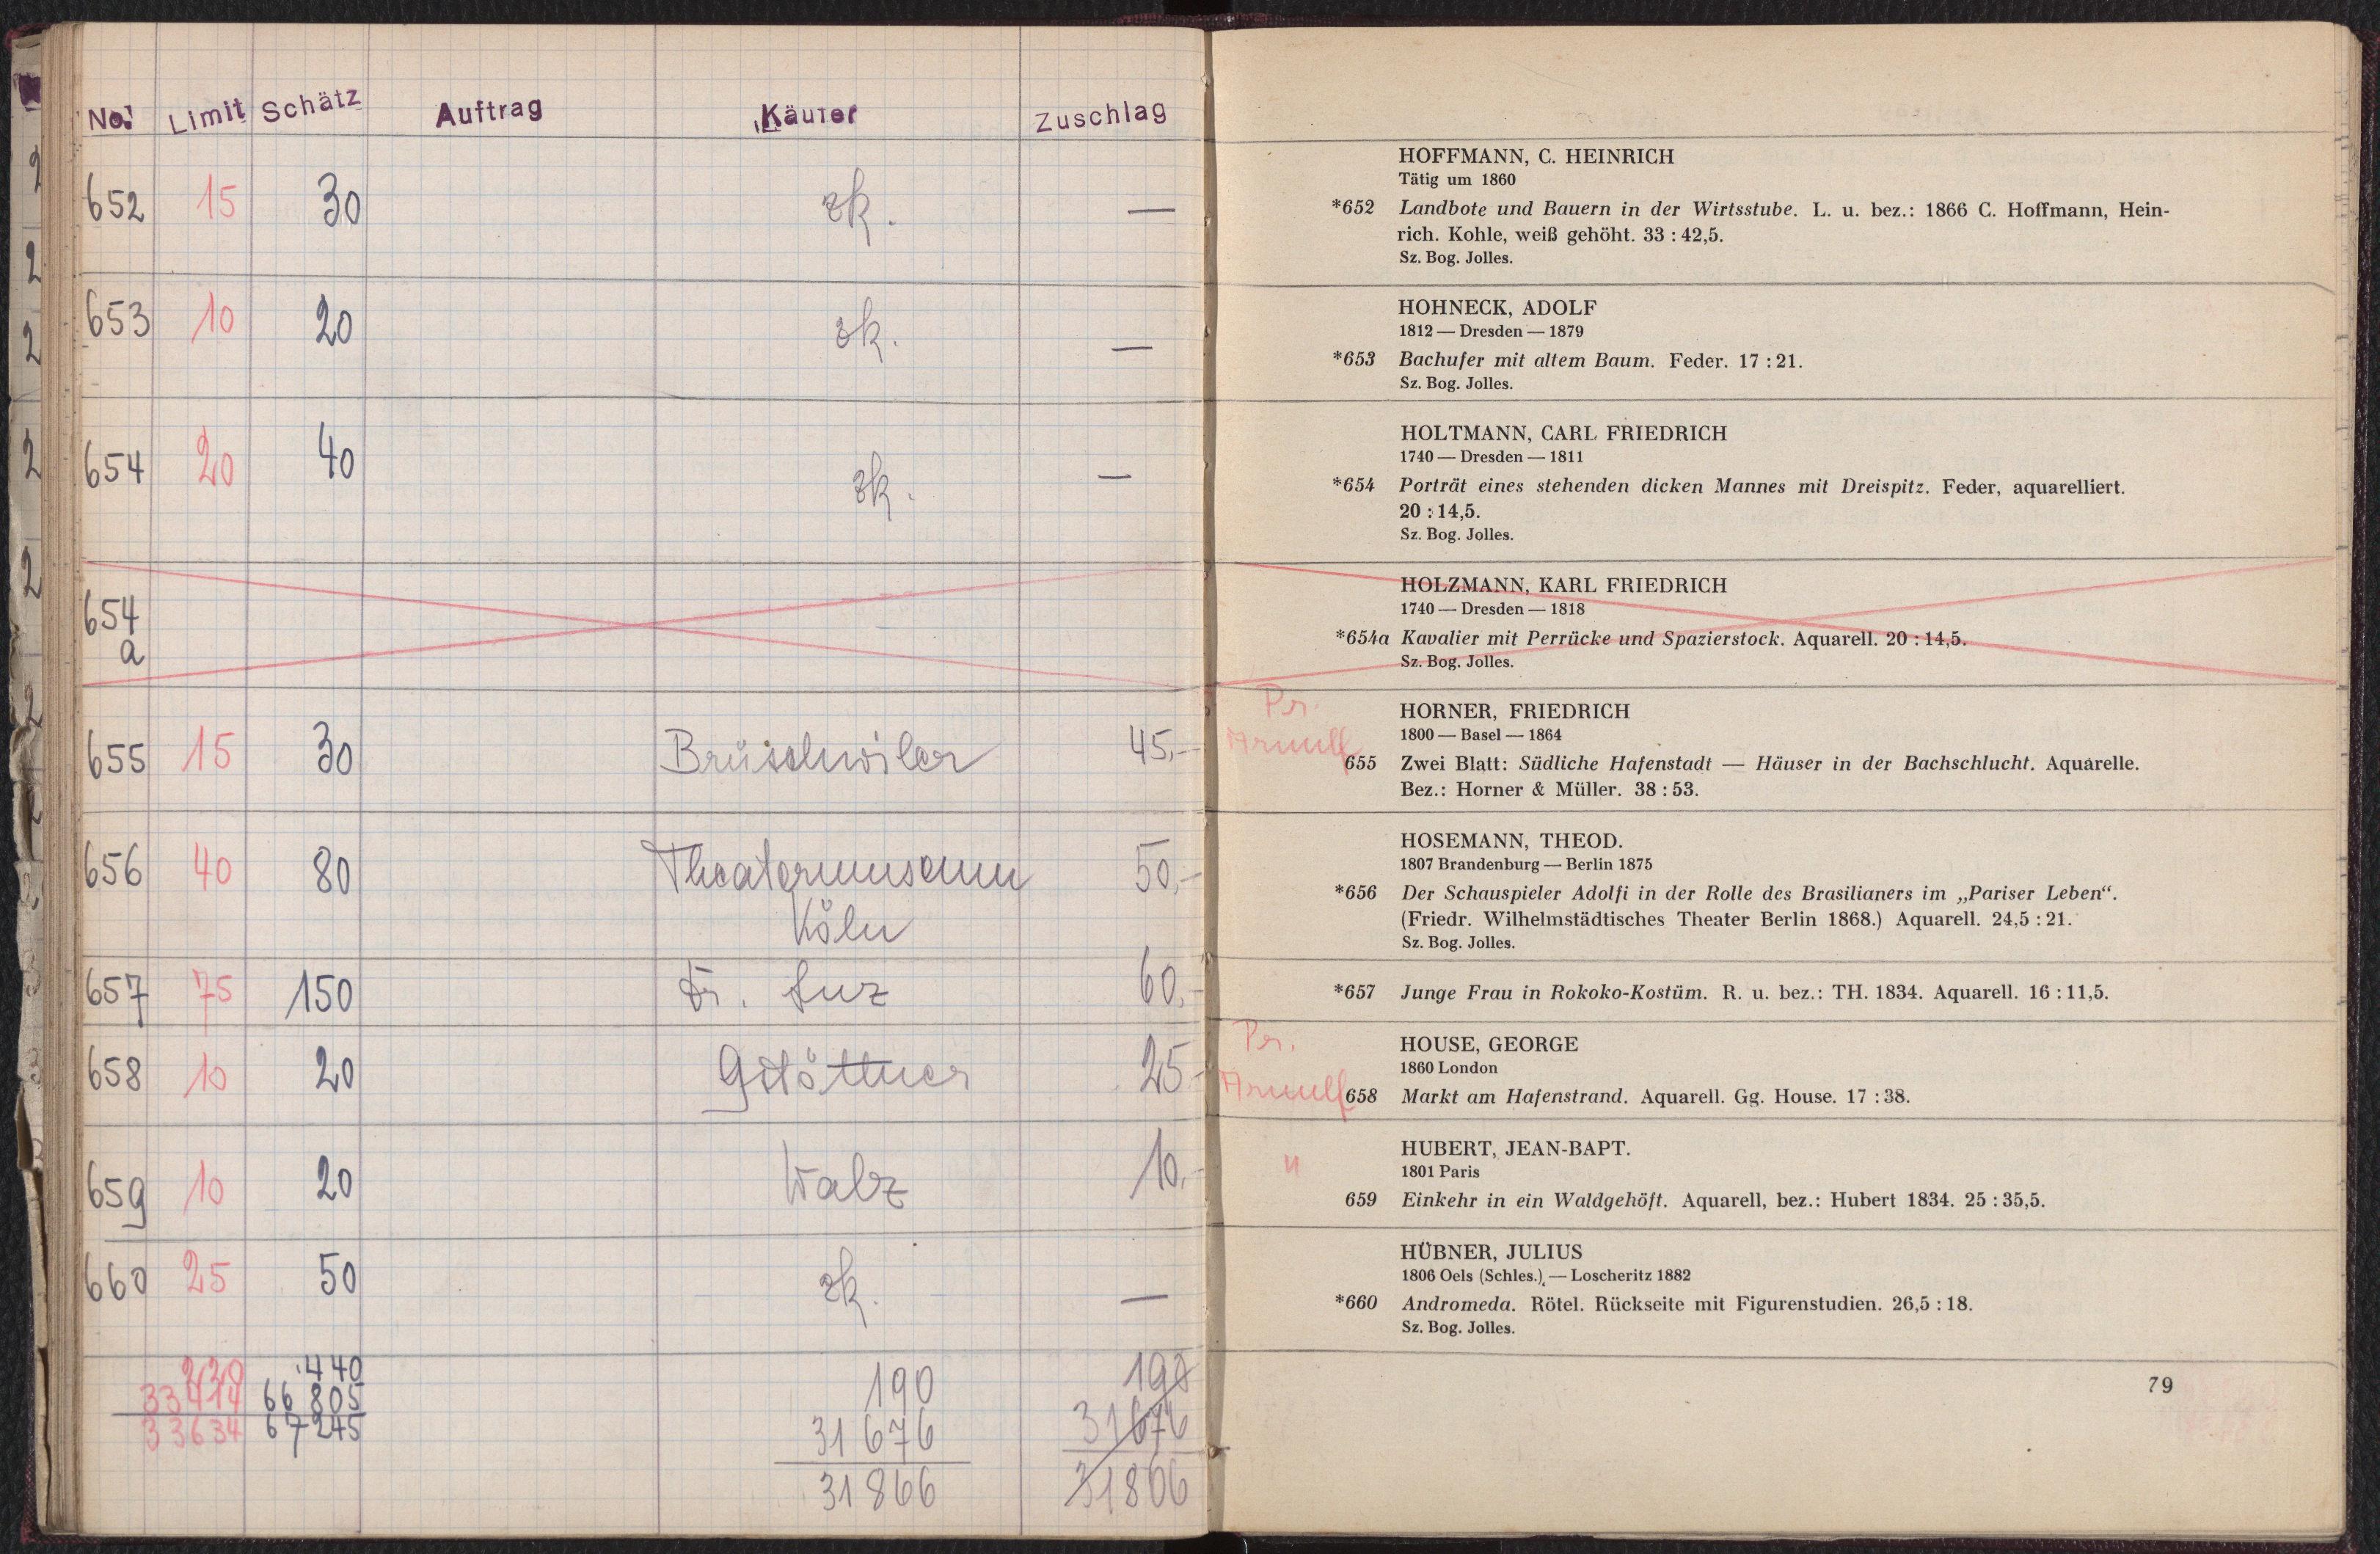 No. Limit Schätz Auftrag Käufer Zuschlag
652 15 30 zk. —
653 10 20 zk. —
654 20 40 zk. —
654
a
655 15 30 Brüschwiler 45,-
656 40 80 Theatermuseum 50,-
Köln
657 75 150 Dr. Luz 60,-
658 10 20 Gstöttner 25,-
659 10 20 Walz 10,-
660 25 50 zk. —
220 440 190 190
33414 66805 31676 31676
33634 67245 31866 31866
HOFFMANN, C. HEINRICH
Tätig um 1860
*652 Landbote und Bauern in der Wirtsstube. L. u. bez.: 1866 C. Hoffmann, Hein-
rich. Kohle, weiß gehöht. 33 : 42,5.
Sz. Bog. Jolles.
HOHNECK, ADOLF
1812 — Dresden — 1879
*653 Bachufer mit altem Baum. Feder. 17 : 21.
Sz. Bog. Jolles.
HOLTMANN, CARL FRIEDRICH
1740 — Dresden — 1811
*654 Porträt eines stehenden dicken Mannes mit Dreispitz. Feder, aquarelliert.
20 : 14,5.
Sz. Bog. Jolles.
HOLZMANN, KARL FRIEDRICH
1740 — Dresden — 1818
*654a Kavalier mit Perrücke und Spazierstock. Aquarell. 20 : 14,5.
Sz. Bog. Jolles.
Pr.
Arnulf
HORNER, FRIEDRICH
1800 — Basel — 1864
655 Zwei Blatt: Südliche Hafenstadt — Häuser in der Bachschlucht. Aquarelle.
Bez.: Horner & Müller. 38 : 53.
HOSEMANN, THEOD.
1807 Brandenburg — Berlin 1875
*656 Der Schauspieler Adolfi in der Rolle des Brasilianers im „Pariser Leben“.
(Friedr. Wilhelmstädtisches Theater Berlin 1868.) Aquarell. 24,5 : 21.
Sz. Bog. Jolles.
*657 Junge Frau in Rokoko-Kostüm. R. u. bez.: TH. 1834. Aquarell. 16 : 11,5.
Pr.
Arnulf
HOUSE, GEORGE
1860 London
658 Markt am Hafenstrand. Aquarell. Gg. House. 17 : 38.
"
HUBERT, JEAN-BAPT.
1801 Paris
659 Einkehr in ein Waldgehöft. Aquarell, bez.: Hubert 1834. 25 : 35,5.
HÜBNER, JULIUS
1806 Oels (Schles.) — Loscheritz 1882
*660 Andromeda. Rötel. Rückseite mit Figurenstudien. 26,5 : 18.
Sz. Bog. Jolles.
79